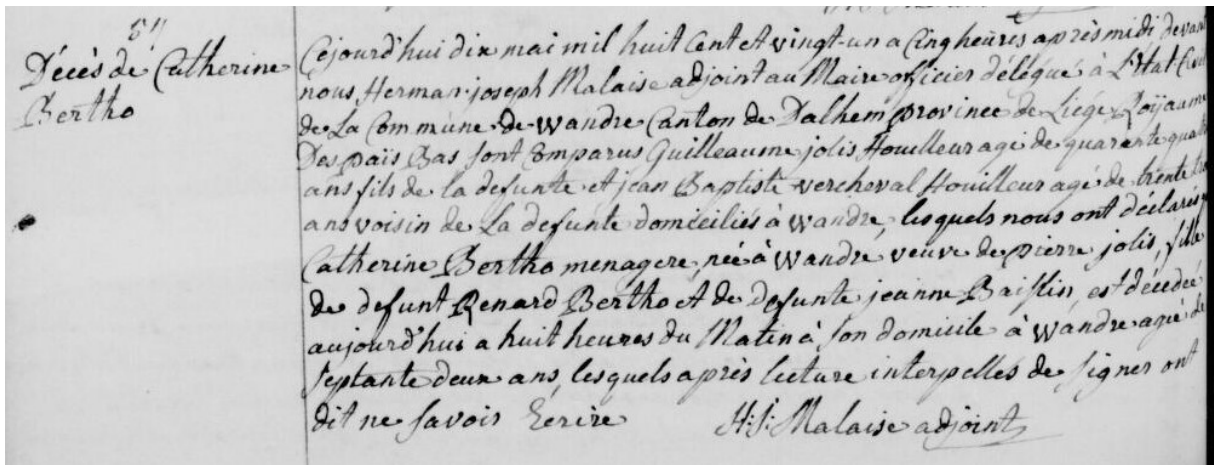 54
Décès de Catherine
Bertho
Cejourd'hui dix mai mil huit Cent et vingt-un a Cinq heures après midi devant
nous Herman-joseph Malaise adjoint au Maire officier délégué à L'Etat-Civil
de La Commune de Wandre Canton de Dalhem province de Liége Royaume
Des païs Bas sont Comparus Guilleaume jolis Houilleur agé de quarante quatre
ans fils de la defunte et jean Baptiste vercheval Houilleur agé de trente trois
ans voisin de La defunte domiciliés à Wandre, lesquels nous ont declarés
Catherine Bertho menagere, née à Wandre, veuve de pierre jolis, fille
de defunt Renard Bertho et de defunte jeanne est décedée
aujourd'hui a huit heures du Matin à son domicile à Wandre agée de
septante deux ans, lesquels après lecture interpellés de signer ont
dit ne savoir Ecrire
H: J: Malaise adjoint